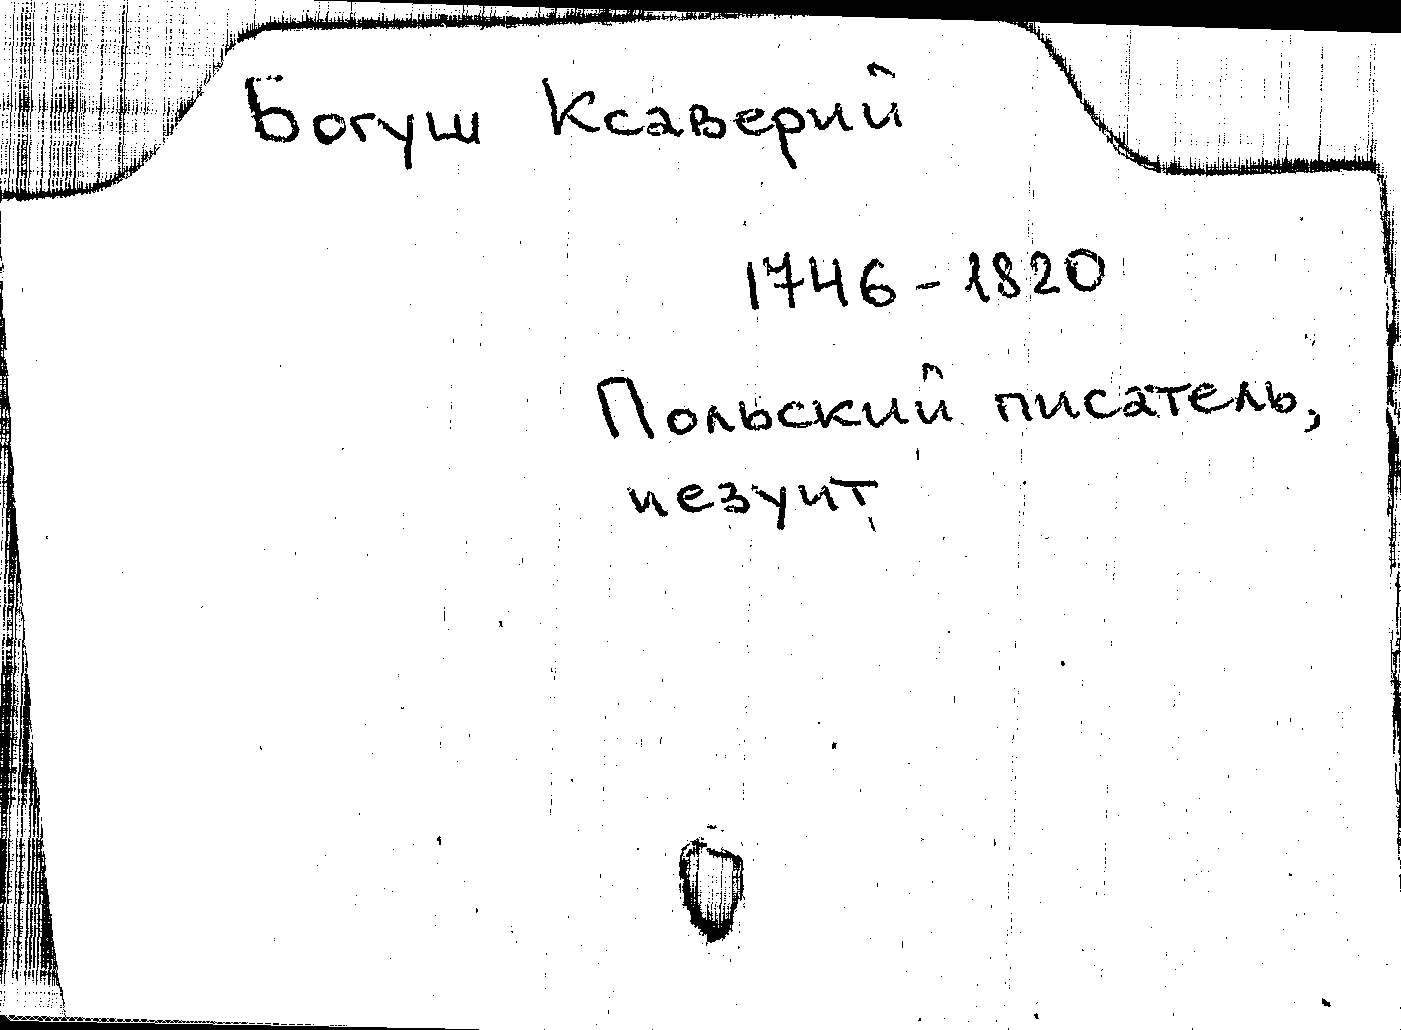 Богуш Ксаверий
1746-1820
Польский писатель,
иезуит